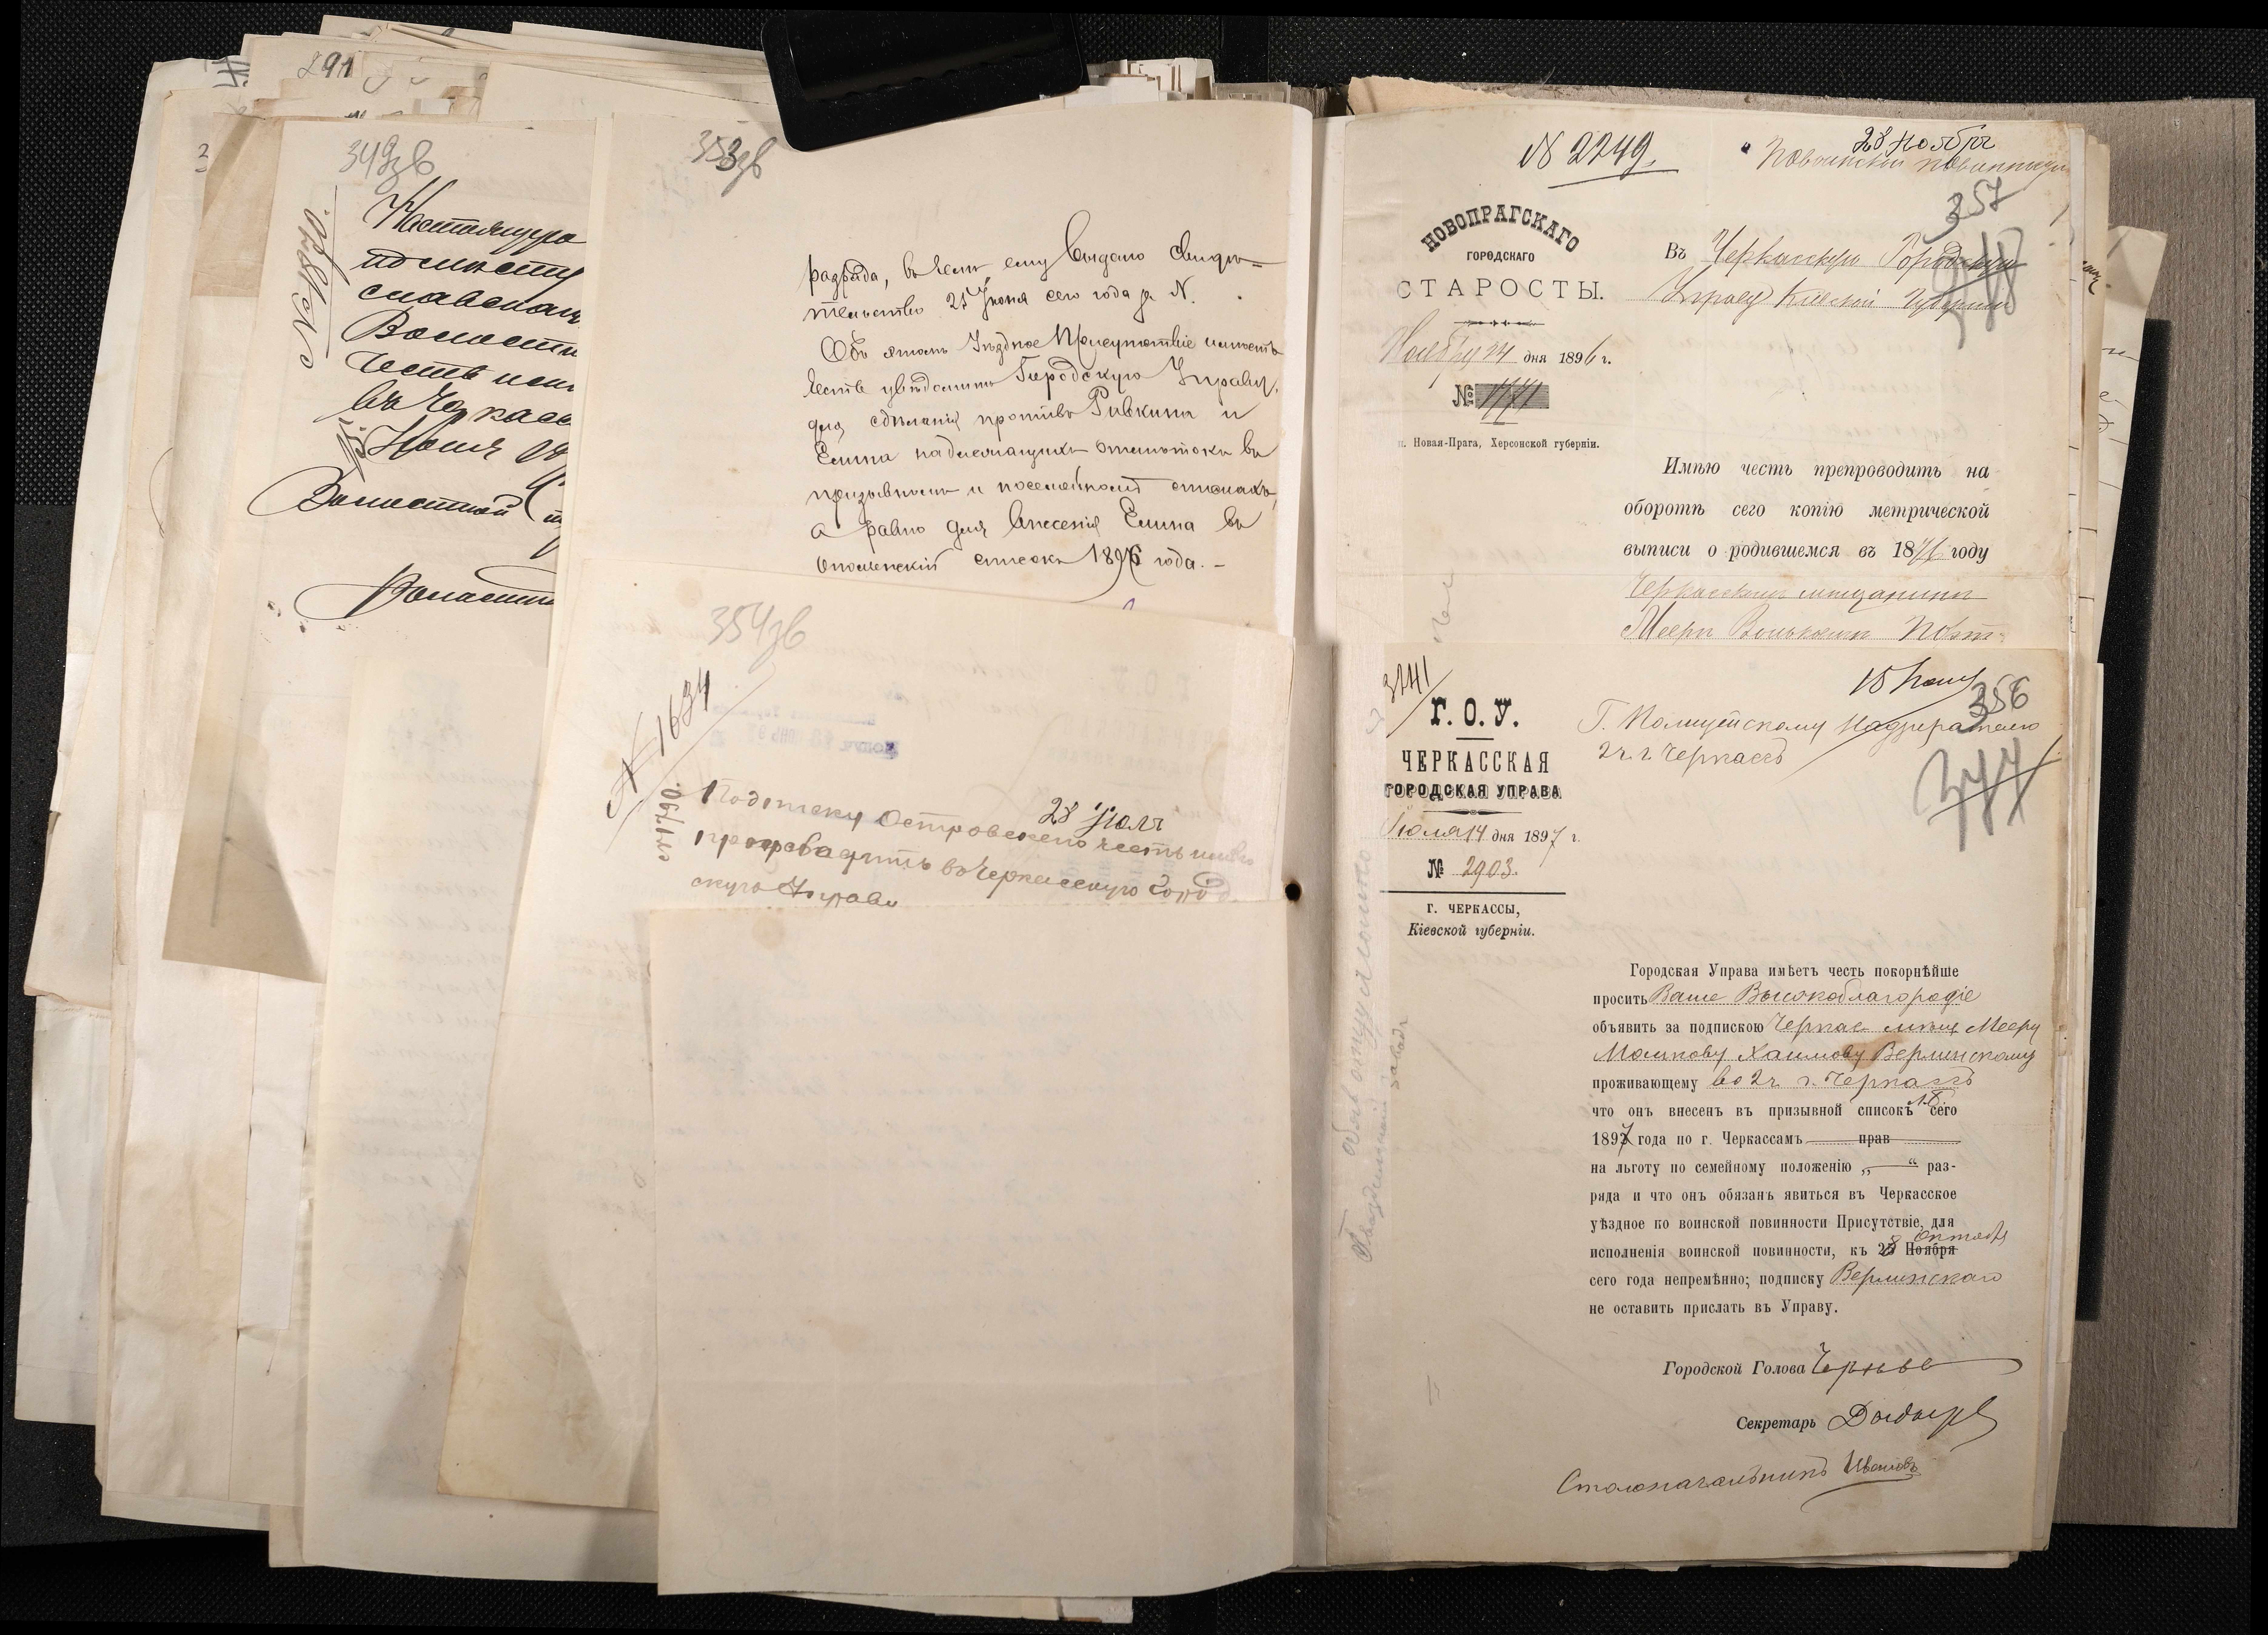 291
349зв
№ 1870.
Настоящую
по мѣсту
славской
Волости
честь
въ Черкас
15 Июня
Волостной
353зв
разряда, въ чемъ ему выдано свидѣ-
тельство 25 Іюня сего года за N.
Объ этомъ Уѣздное Присутствіе имѣетъ
честь увѣдомить Городскую Управу,
для сдѣланія противъ Ривкина и
Елина надлежащихъ отмѣтокъ въ
призывномъ и посемейномъ спискахъ,
а равно для внесенія Елина въ
ополченскій списокъ 1896 года. -
354зв
N 1634
28 Іюля
Подписку Островскаго честь имѣю
препроводить въ Черкасскую Город
скую Управу
N 2249.
28 Ноября
Воинской повинности
357
НОВОПРАГСКАГО
ГОРОДСКАГО
СТАРОСТЫ.
Ноября 24 дня 1896 г.
№ 1171
п. Новая-Прага, Херсонской губерніи.
Въ Черкасскую Городскую
Управу Кіевской Губерніи
Имѣю честь препроводить на
оборотѣ сего копію метрической
выписи о родившемся въ 1876 году
Черкасскомъ мѣщанинѣ
Меерѣ Волькомѣ
3241
15 Іюля
356
377
Г. О. У.
ЧЕРКАССКАЯ
ГОРОДСКАЯ УПРАВА
Іюля 14 дня 1897 г.
№ 2903.
Г. ЧЕРКАССЫ,
Кіевской губерніи.
Г. Полицейскому Надзирателю
2 ч. г. Черкассъ
Городская Управа имѣетъ честь покорнѣйше
просить Ваше Высокоблагородіе
объявить за подпискою Черкас. мѣщ. Мееру
Мошкову Хаимову Верлинскому
проживающему во 2 ч. г. Черкассъ
что онъ внесенъ въ призывной списокъ сего
1897 года по г. Черкассамъ прав
на льготу по семейному положенію „ — “ раз-
ряда и что онъ обязанъ явиться въ Черкасское
уѣздное по воинской повинности Присутствіе, для
исполненія воинской повинности, къ 28 Ноября Октября
сего года непремѣнно; подписку Верлинскаго
не оставить прислать въ Управу.
Городской Голова
Секретарь
Столоначальникъ Ивановъ